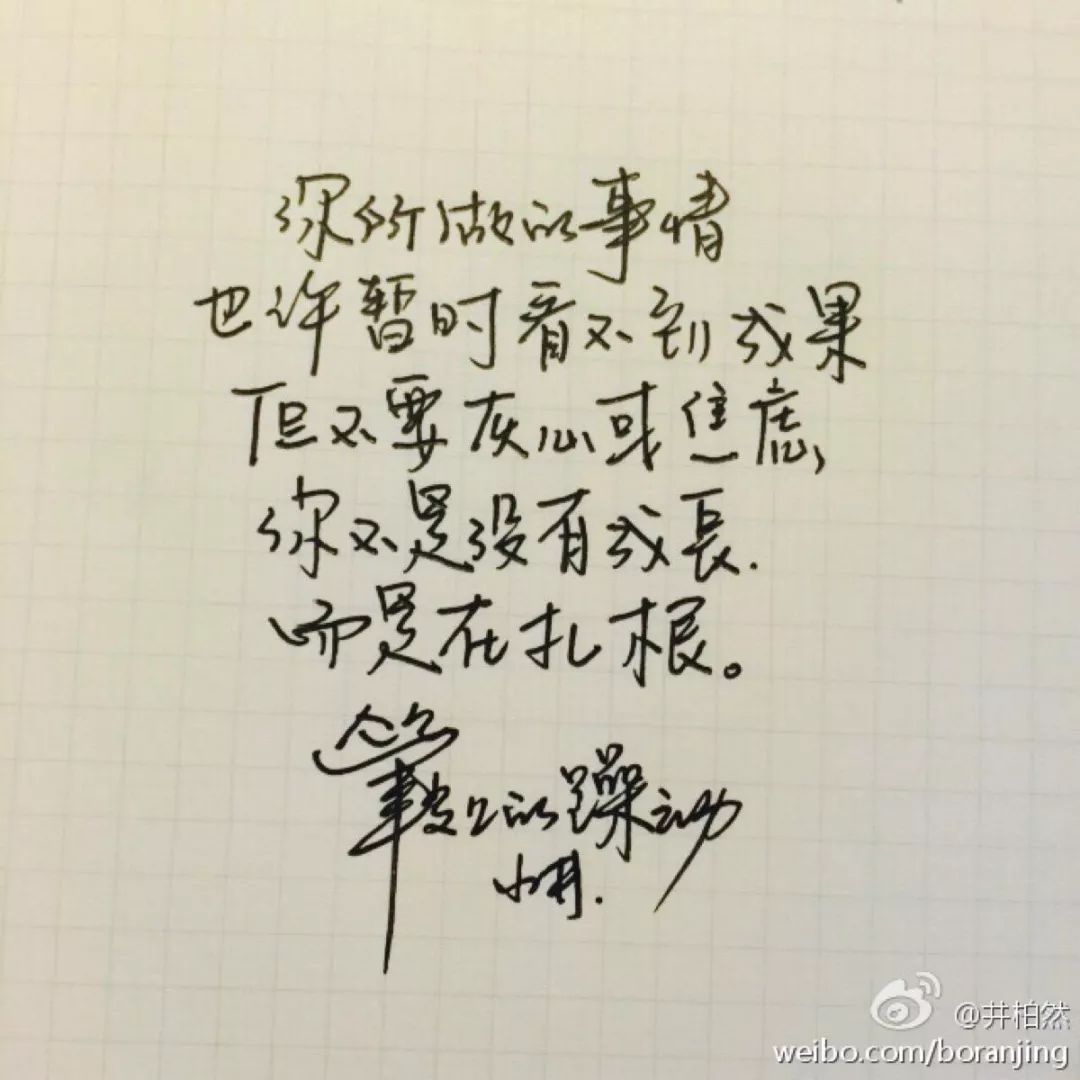 你所做的事情
也许暂时看不到成果
但不要灰心或焦虑,
你不是没有成長.
而是在扎根。
筆努力的躁动
小井.
@井柏然
weibo.com/boranjing